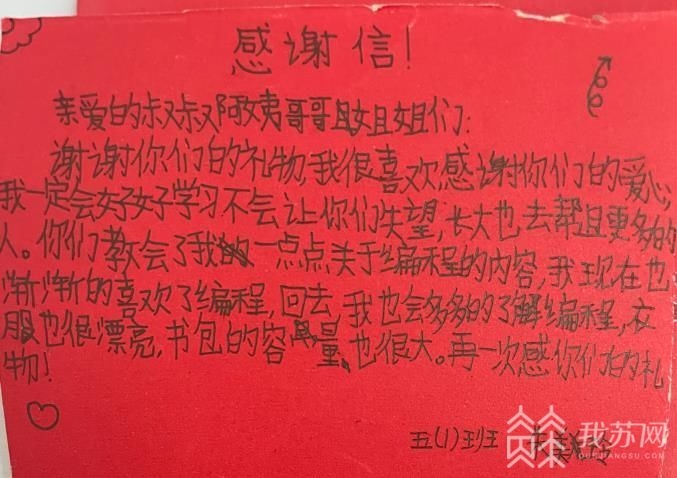 感谢信!
亲爱的叔叔阿姨哥哥姐姐们:
谢谢你们的礼物,我很喜欢,感谢你们的爱心,
我一定会好好学习不会让你们失望,长大也去帮且更多的
人。你们教会了我一点点关于编程的内容,我现在也
渐渐的喜欢了编程,回去,我也会多多的了解编程,衣
服也很漂亮,书包的容量也很大。再一次感你们的礼
物!
五(1)班
我苏网
OURJIANGSU.COM